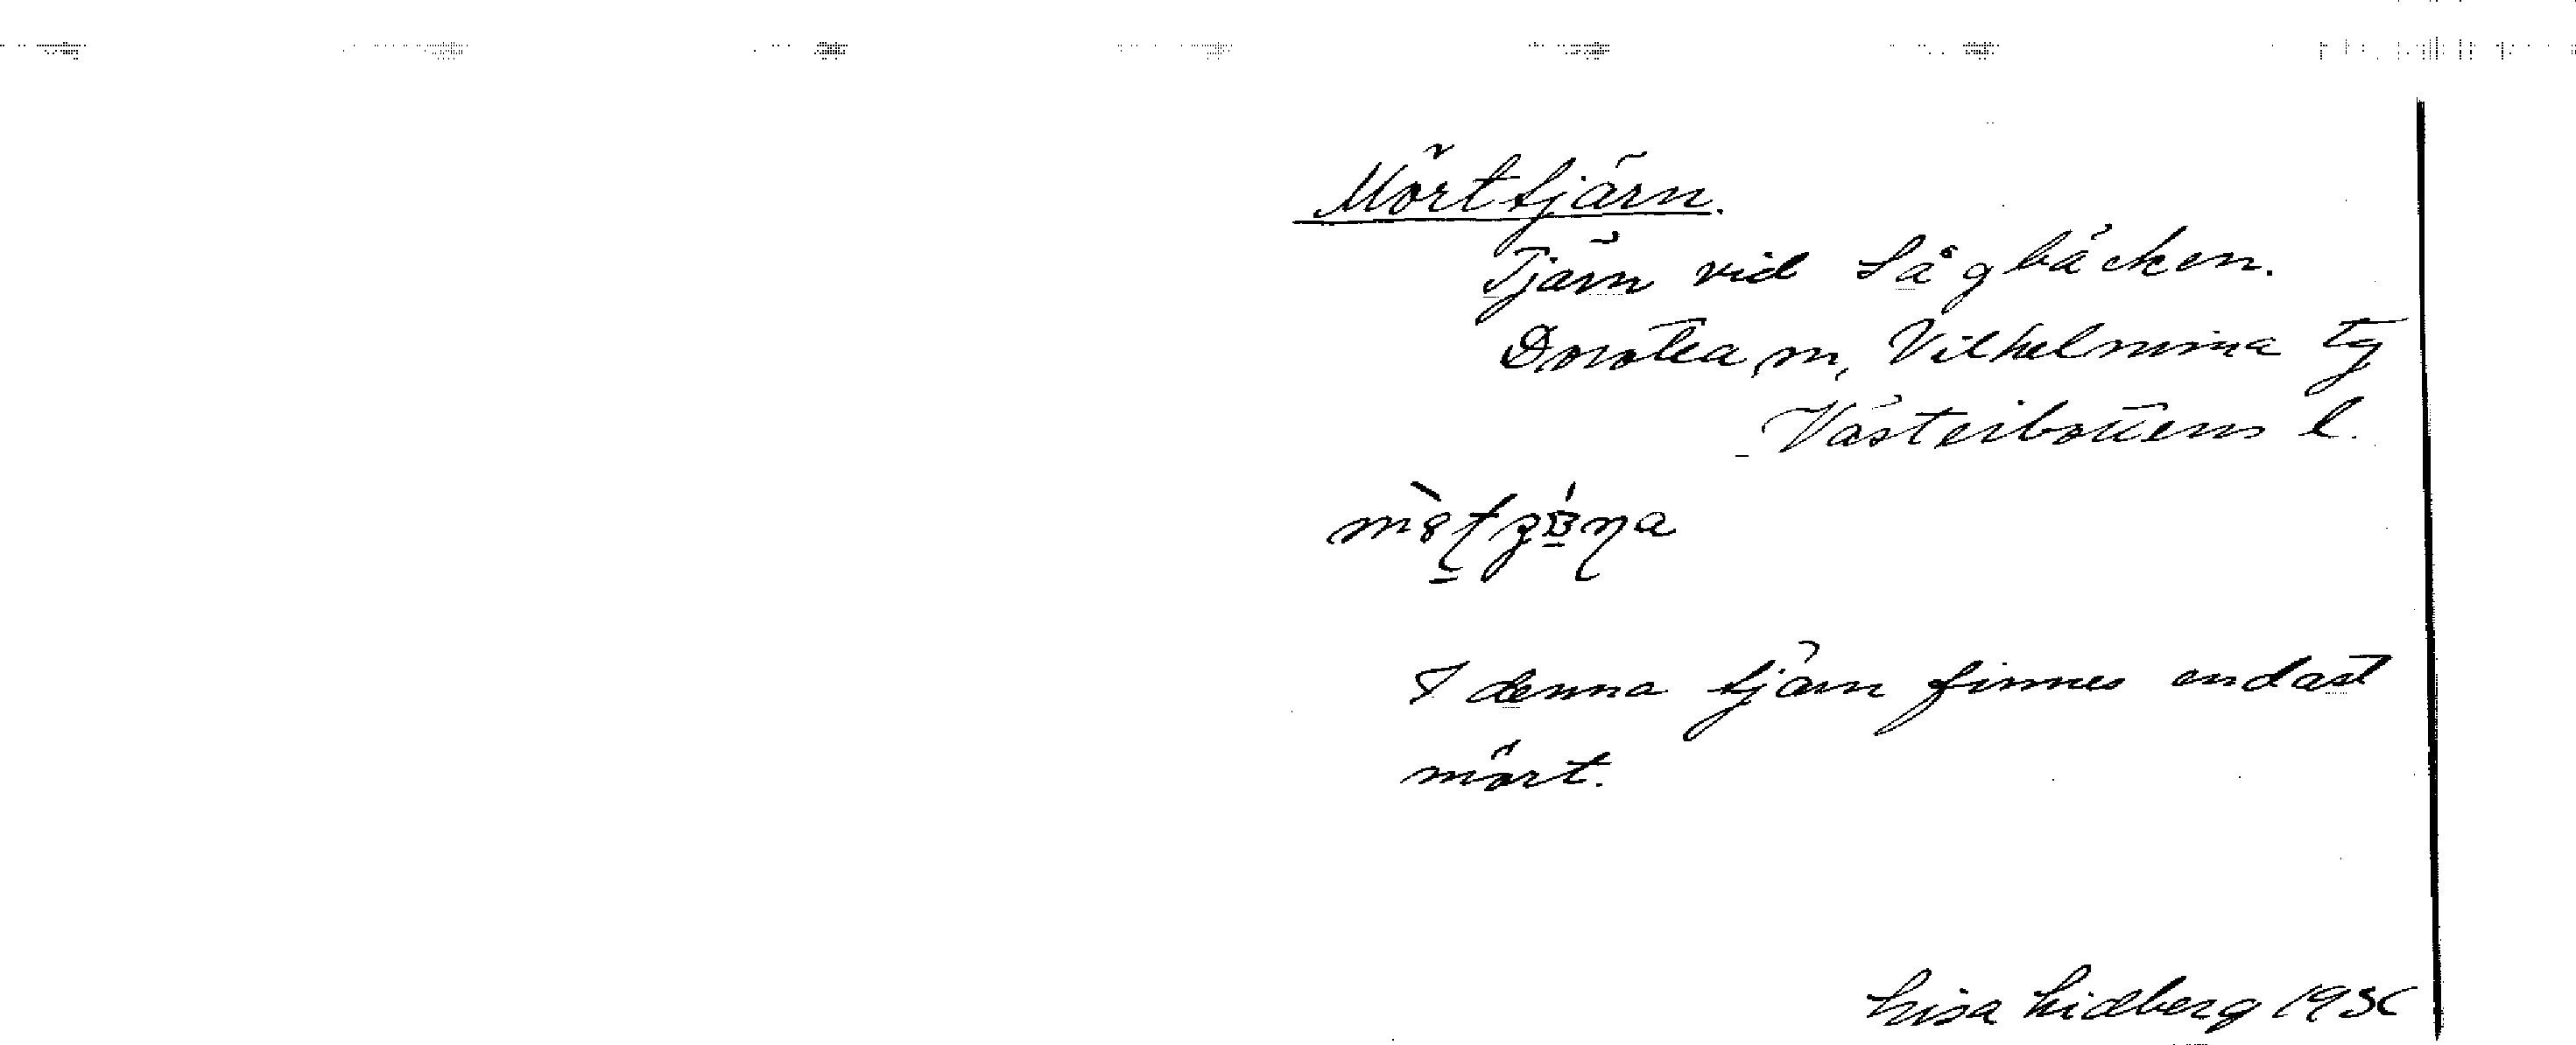 Mörttjärn.
Tjärn vid Sågbäcken.
Dorotea, m, Vilhelmina tg
Västerbottens l.
I denna tjärn finnes endast
mört.
Lisa Lidberg